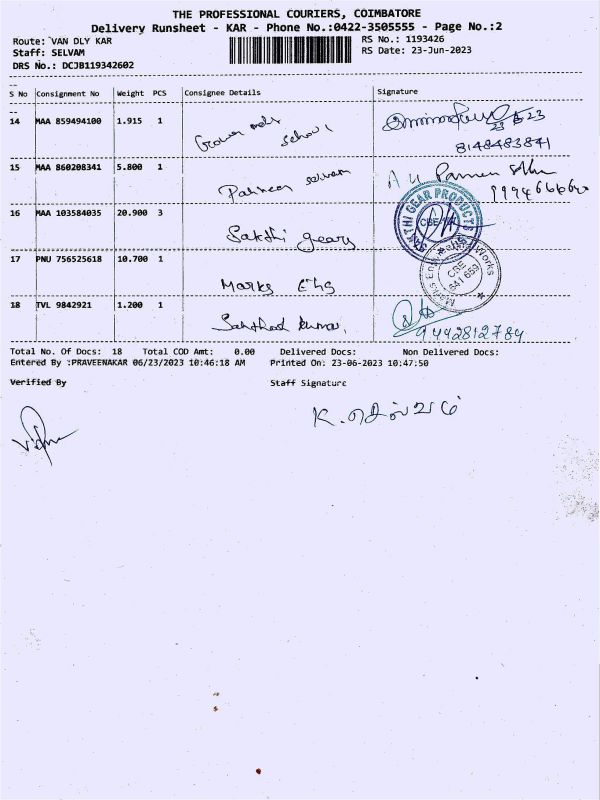 THE PROFESSIONAL COURIERS, COIMBATORE
Delivery Runsheet - KAR - Phone No.:0422-3505555 - Page No.:2
Route: VAN DLY KAR
RS No.: 1193426
Staff: SELVAM
RS Date: 23-Jun-2023
DRS No.: DCJB119342602
S No Consignment No Weight PCS Consignee Details Signature
14 MAA 859494100 1.915 1
School
8148483841
15 MAA 860208341 5.800 1
Selvam
16 MAA 103584035 20.900 3
Sakthi gears
SAKTHI GEAR PRODUCTS
17 PNU 756525618 10.700 1
Marks Eng
Works
CBE
641 659
18 TVL 9842921 1.200 1
kumar,
9442812784
Total No. Of Docs: 18 Total COD Amt: 0.00 Delivered Docs: Non Delivered Docs:
Entered By :PRAVEENAKAR 06/23/2023 10:46:18 AM Printed On: 23-06-2023 10:47:50
Verified By Staff Signature